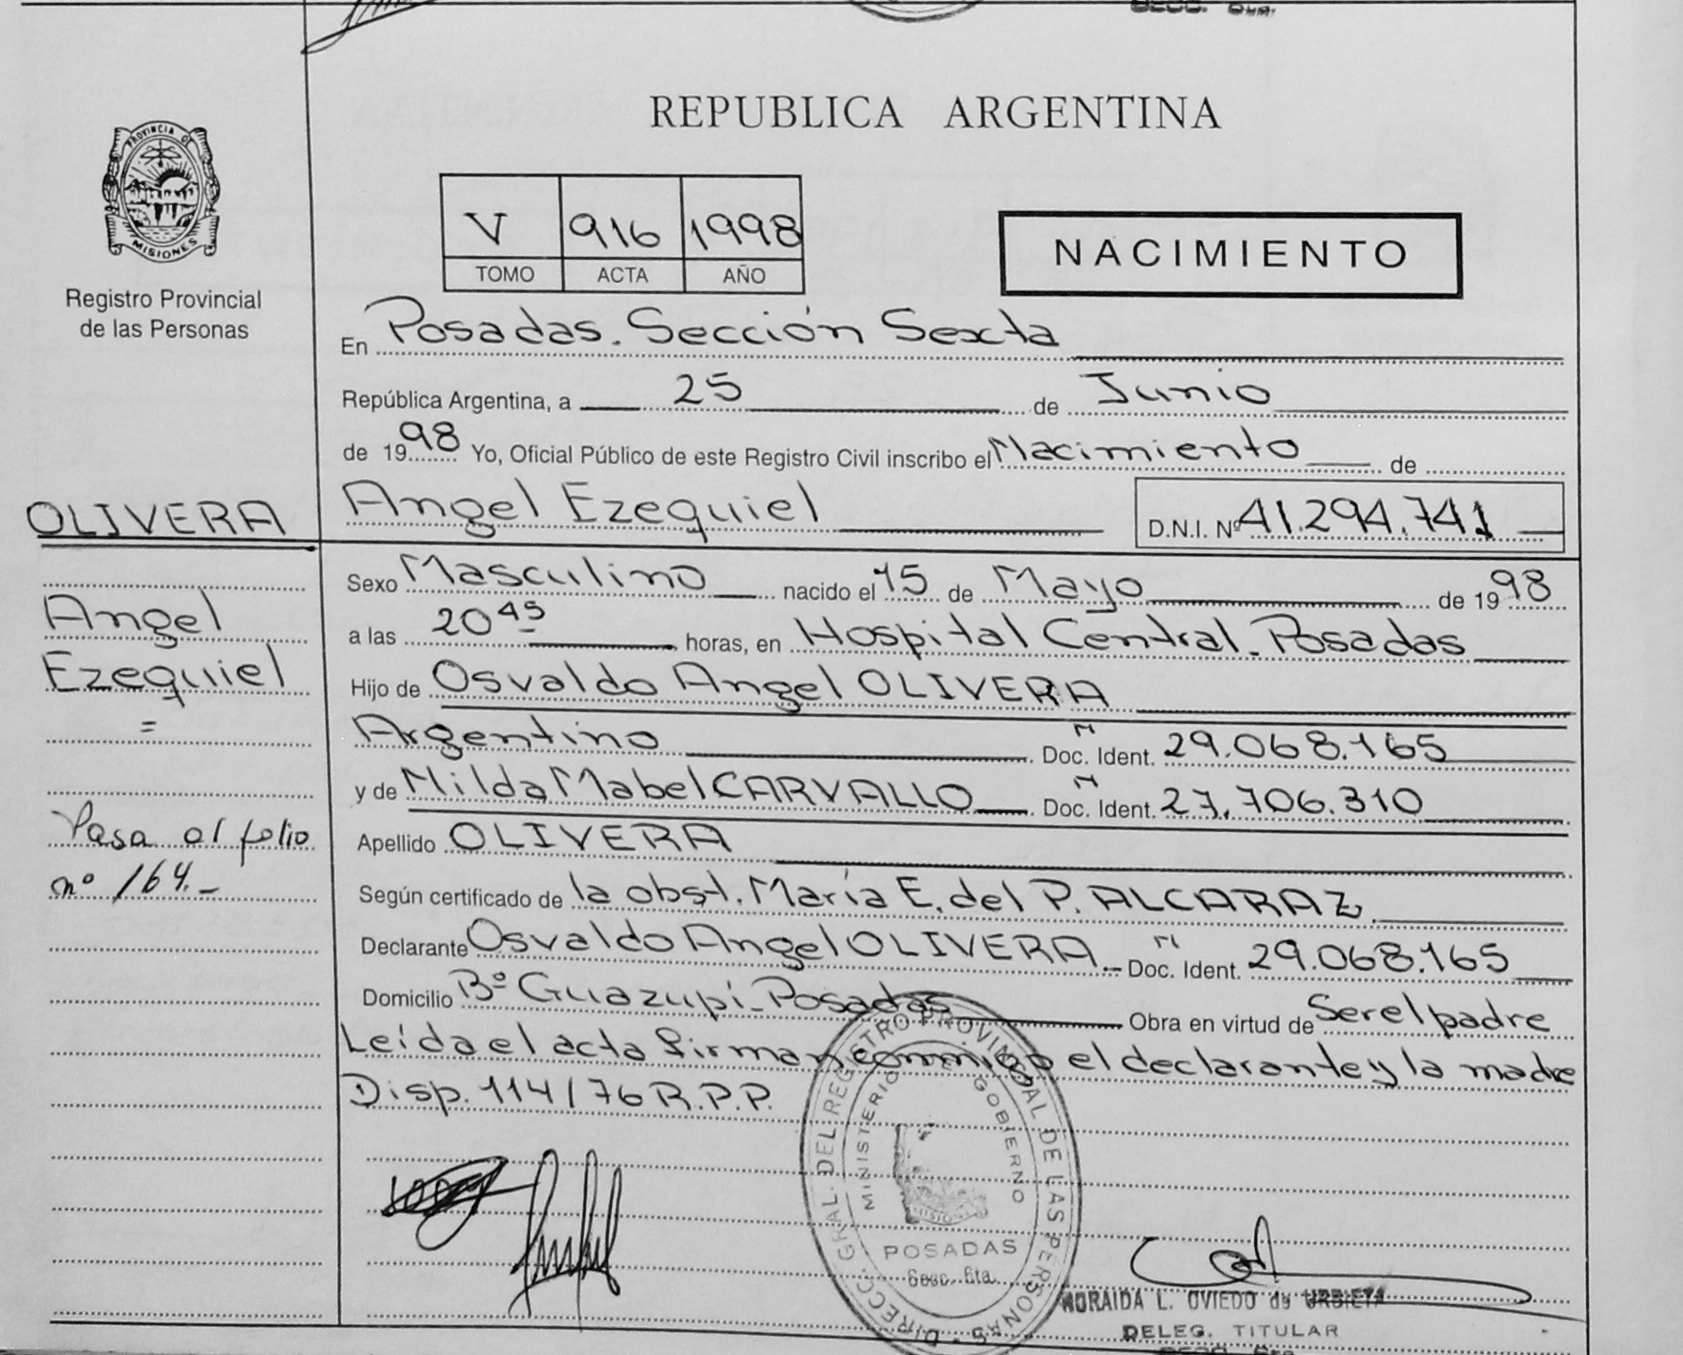 REPUBLICA ARGENTINA
PROVINCIA DE
MISIONES
Registro Provincial
de las Personas
V 916 1998
TOMO ACTA AÑO
NACIMIENTO
En Posadas. Sección Sexta
República Argentina, a 25 de Junio
de 1998 Yo, Oficial Público de este Registro Civil inscribo el Nacimiento de
OLIVERA
Angel Ezequiel D.N.I. Nº 41.294.741
Sexo Masculino nacido el 15 de Mayo de 1998
Angel
Ezequiel
=
a las 20 45 horas, en Hospital Central. Posadas
Hijo de Osvaldo Angel OLIVERA
Argentino Doc. Ident. 29.068.165
y de Nilda Mabel CARVALLO Doc. Ident. 27.706.310
Pasa al folio
nº 164.-
Apellido OLIVERA
Según certificado de la obst. María E. del P. ALCARAZ.
Declarante Osvaldo Angel OLIVERA Doc. Ident. 29.068.165
Domicilio Bº Guazupi - Posadas Obra en virtud de Ser el padre
Leída el acta firman conmigo el declarante y la madre
Disp. 114/76 R.P.P.
DIRECC. GRAL. DEL REGISTRO PROVINCIAL DE LAS PERSONAS
MINISTERIO GOBIERNO
MISIONES
POSADAS
Secc. 6ta.
NORAIDA L. OVIEDO de URBIETA
DELEG. TITULAR